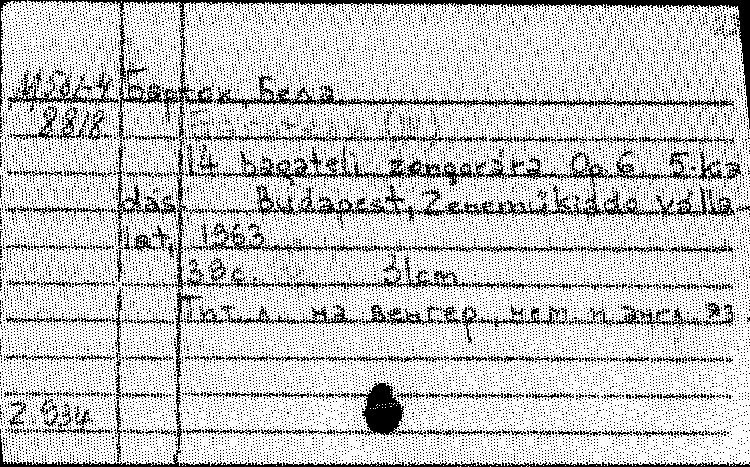 Барток, Бела.
8818
14 bagateli zongorára Op. 6. 5. kia
dás. Budapest, Zeneműkiadó válla-
lat, 1963
38 с. 31cm
Тит. л. на венгер., нем. и англ. яз.